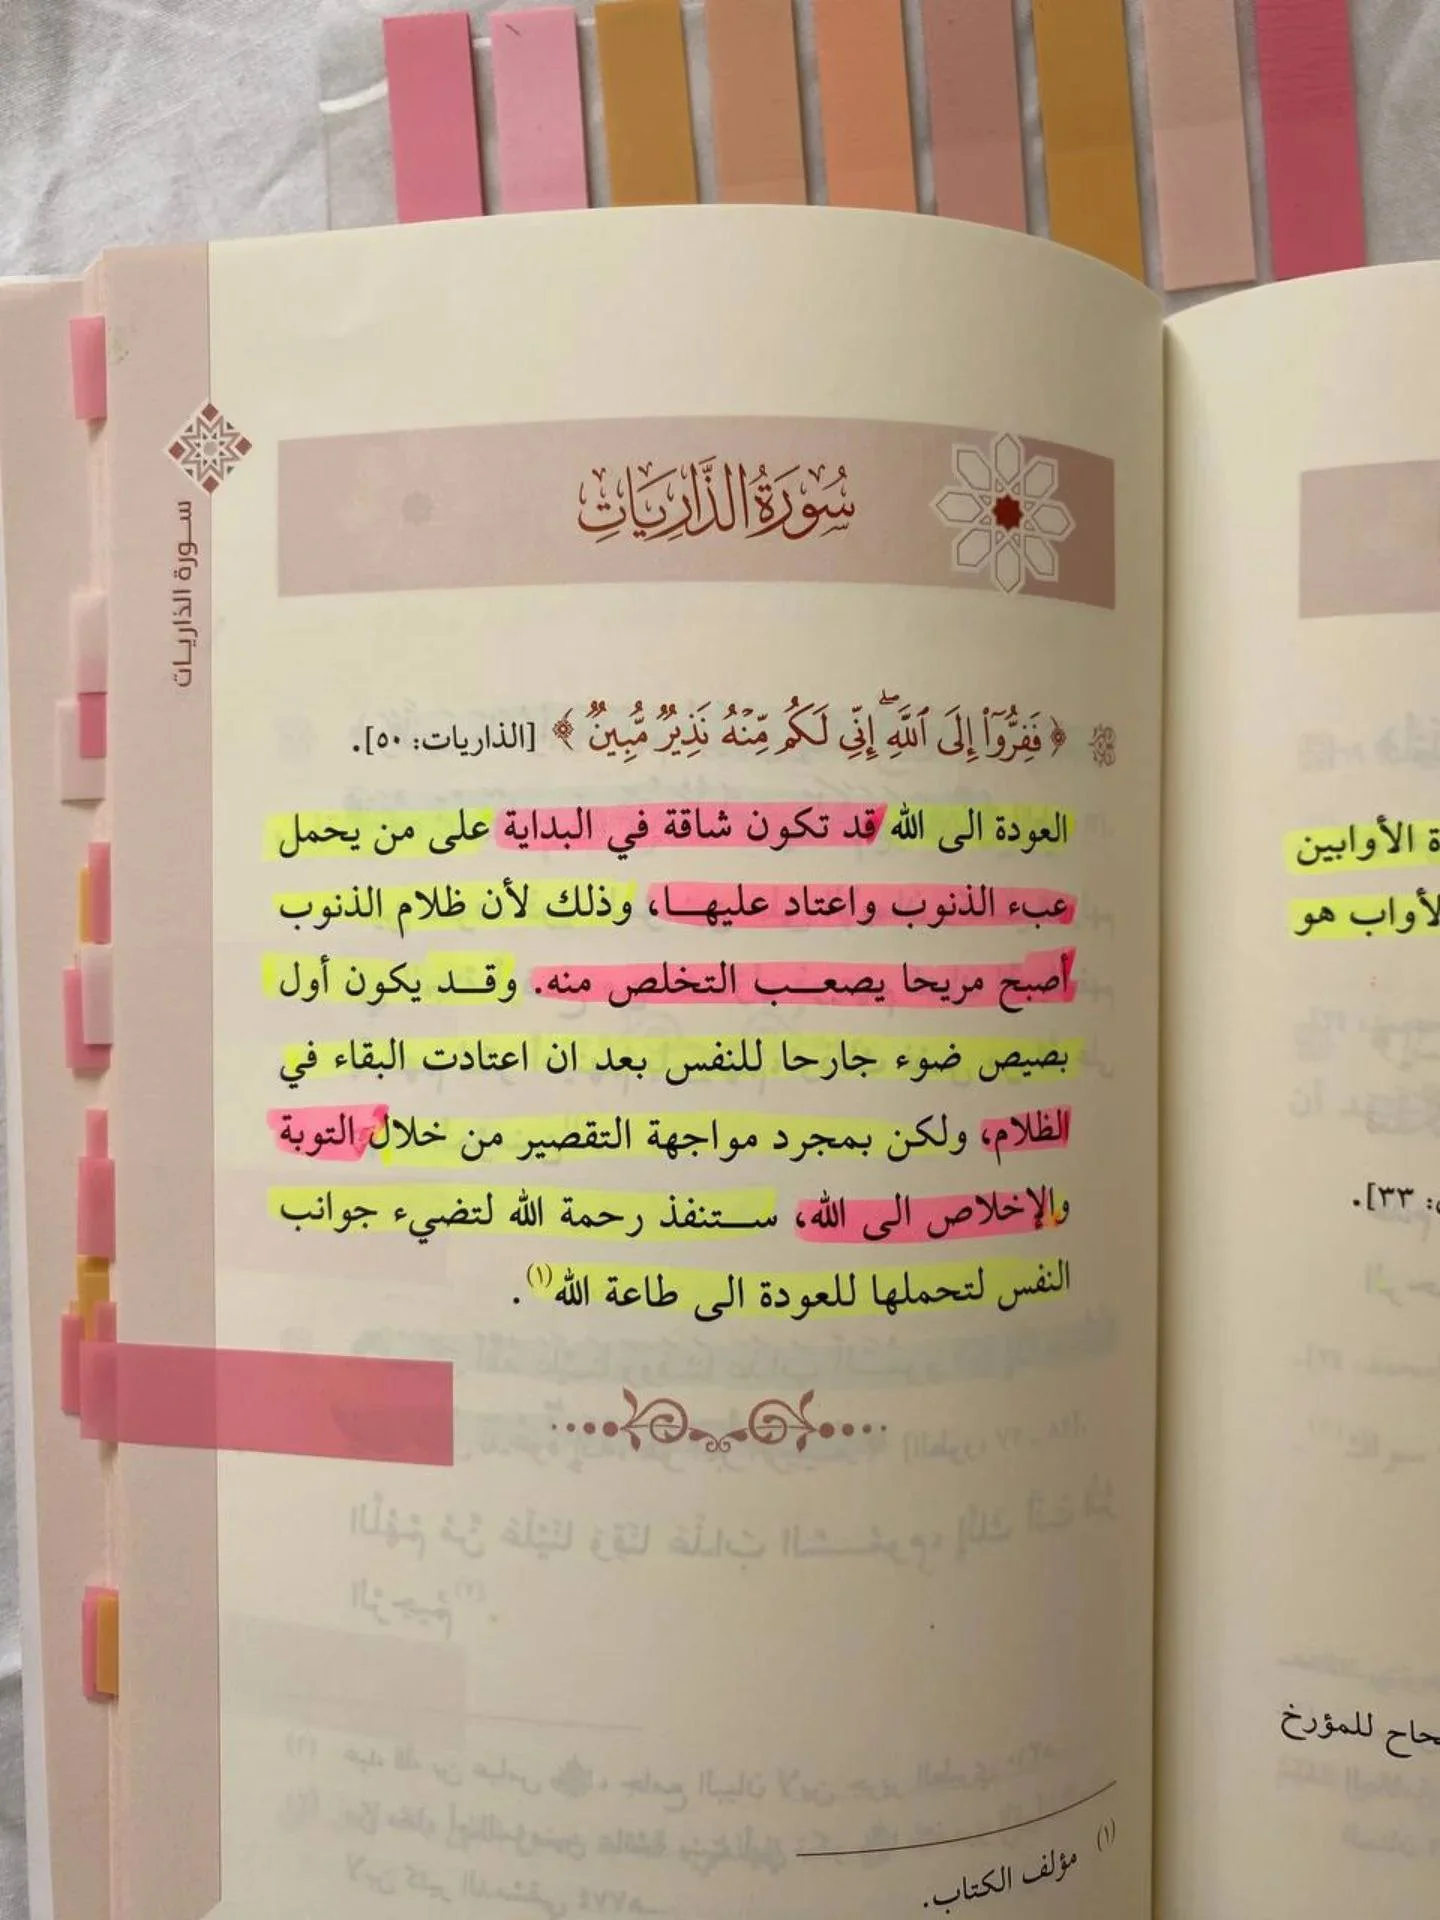 سُورَةُ الذَّارِيَاتِ
سـورة الذاريـات
﴿ فَفِرُّوٓا۟ إِلَى ٱللَّهِ ۖ إِنِّى لَكُم مِّنْهُ نَذِيرٌ مُّبِينٌ ﴾ [الذاريات: ٥٠].
العودة الى الله قد تكون شاقة في البداية على من يحمل
عبء الذنوب واعتاد عليهـا، وذلك لأن ظلام الذنوب
أصبح مريحا يصعـب التخلص منه. وقـد يكون أول
بصيص ضوء جارحا للنفس بعد ان اعتادت البقاء في
الظلام، ولكن بمجرد مواجهة التقصير من خلال التوبة
والإخلاص الى الله، ستنفذ رحمة الله لتضيء جوانب
النفس لتحملها للعودة الى طاعة الله(١).
(١) مؤلف الكتاب.
ة الأوابين
لأواب هو
: ٣٣].
للمؤرخ